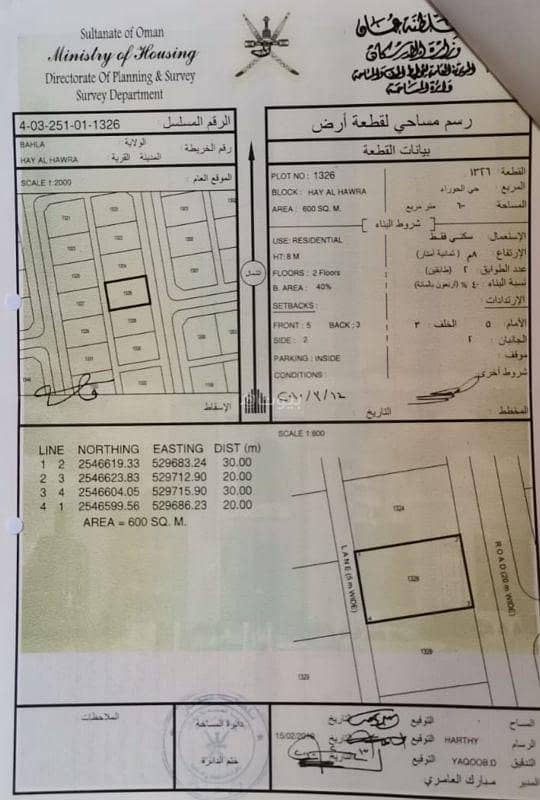 Sultanate of Oman
Ministry of Housing
Directorate Of Planning & Survey
Survey Department
سلطنة عمان
وزارة الإسكان
دائرة المساحة
4-03-251-01-1326 الرقم المسلسل :
BAHLA الولاية :
HAY AL HAWRA المدينة القرية :
رقم الخريطة :
SCALE 1:2000 الموقع العام :
رسم مساحي لقطعة أرض
بيانات القطعة
PLOT NO : 1326
القطعة : ١٣٢٦
BLOCK : HAY AL HAWRA
المربع : حي الحوراء
AREA : 600 SQ. M.
المساحة : ٦٠٠ متر مربع
شروط البناء
USE: RESIDENTIAL
الإستعمال: سكني فقط
HT: 8 M
الإرتفاع: ٨م (ثمانية أمتار)
FLOORS : 2 Floors
عدد الطوابق : ٢ (طابقين)
B. AREA : 40%
نسبة البناء : ٤٠ % (أربعون بالمائة)
SETBACKS :
الإرتدادات :
FRONT : 5 BACK : 3
الأمام : ٥ الخلف : ٣
SIDE : 2
الجانبان : ٢
PARKING : INSIDE
موقف :
CONDITIONS :
شروط أخرى
المخطط : التاريخ :
الشمال
الإسقاط
1321
1320
1324
1326
1328
1331
1332
1330
SCALE 1:600
LINE NORTHING EASTING DIST (m)
1 2 2546619.33 529683.24 30.00
2 3 2546623.83 529712.90 20.00
3 4 2546604.05 529715.90 30.00
4 1 2546599.56 529686.23 20.00
AREA = 600 SQ. M.
1324
1326
1328
1329
LANE (5 m WIDE)
ROAD (20 m WIDE)
الملاحظات :
دائرة المساحة
ختم الدائرة
المساح التوقيع التاريخ
15/02/2010
الرسام HARTHY التوقيع التاريخ
التدقيق YAQOOB.D التوقيع التاريخ
المدير مبارك العامري